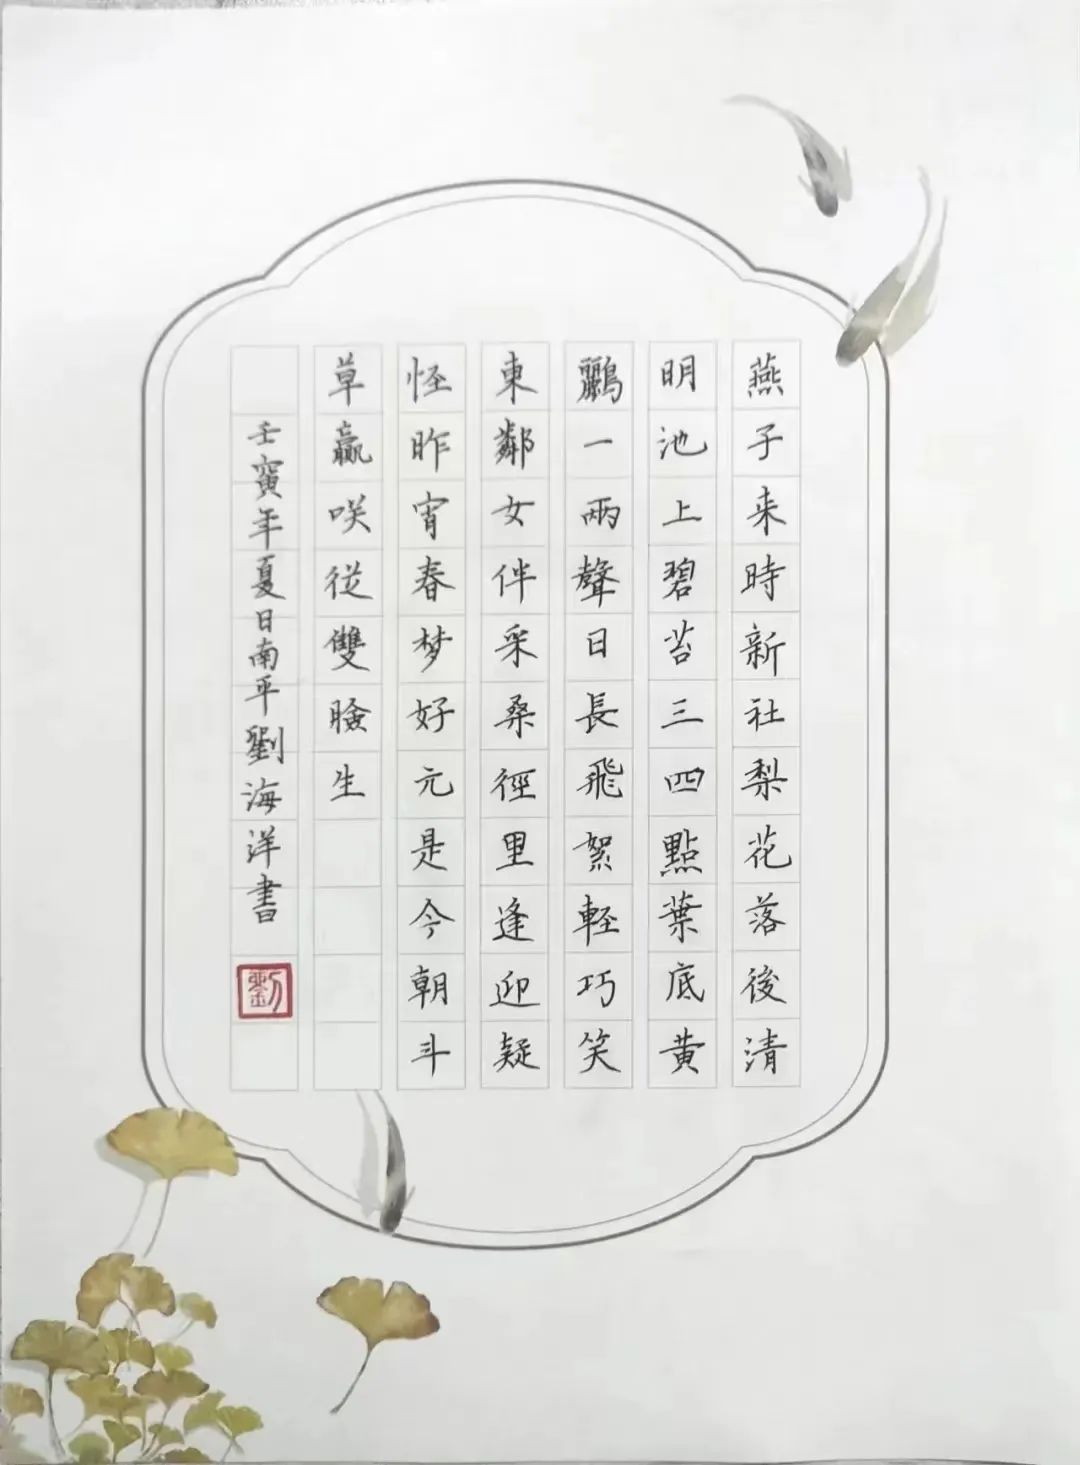 燕子来時新社梨花落後清
明池上碧苔三四點葉底黄
鸝一兩聲日長飛絮輕巧笑
東鄰女伴采桑徑里逢迎疑
怪昨宵春梦好元是今朝斗
草贏咲從雙臉生
壬寅年夏日南平劉海洋書
劉